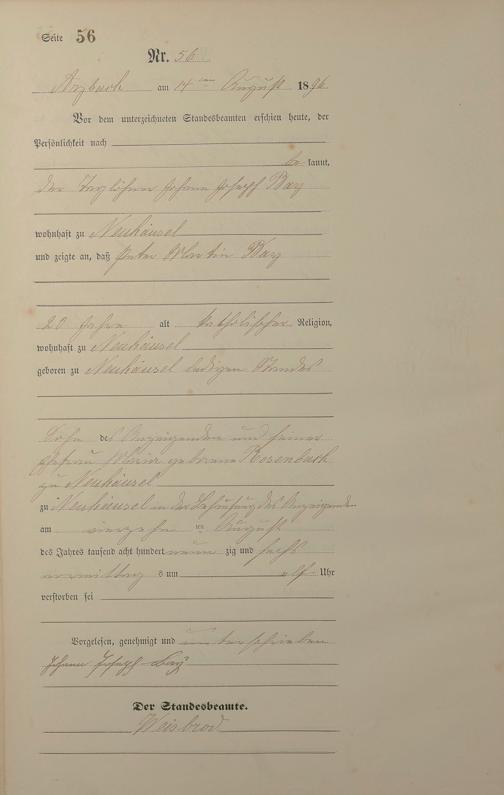 Seite 56
Nr. 56
Arzbach am 14 ten August 1896
Vor dem unterzeichneten Standesbeamten erschien heute, der
Persönlichkeit nach
be kannt,
der Taglöhner Johann Joseph Bay
wohnhaft zu Neuhäusel
und zeigte an, daß Peter Martin Bay
20 Jahre alt katholischer Religion,
wohnhaft zu Neuhäusel
geboren zu Neuhäusel ledigen Standes
Sohn des Anzeigenden und seiner
Ehefrau Maria geborene Rosenbach
zu Neuhäusel
zu Neuhäusel in der Behausung des Anzeigenden
am vierzehn ten August
des Jahres tausend acht hundert neun zig und sechs
vormittag s um elf Uhr
verstorben sei
Vorgelesen, genehmigt und unterschrieben
Johann Joseph Bay
Der Standesbeamte.
Weisbrod